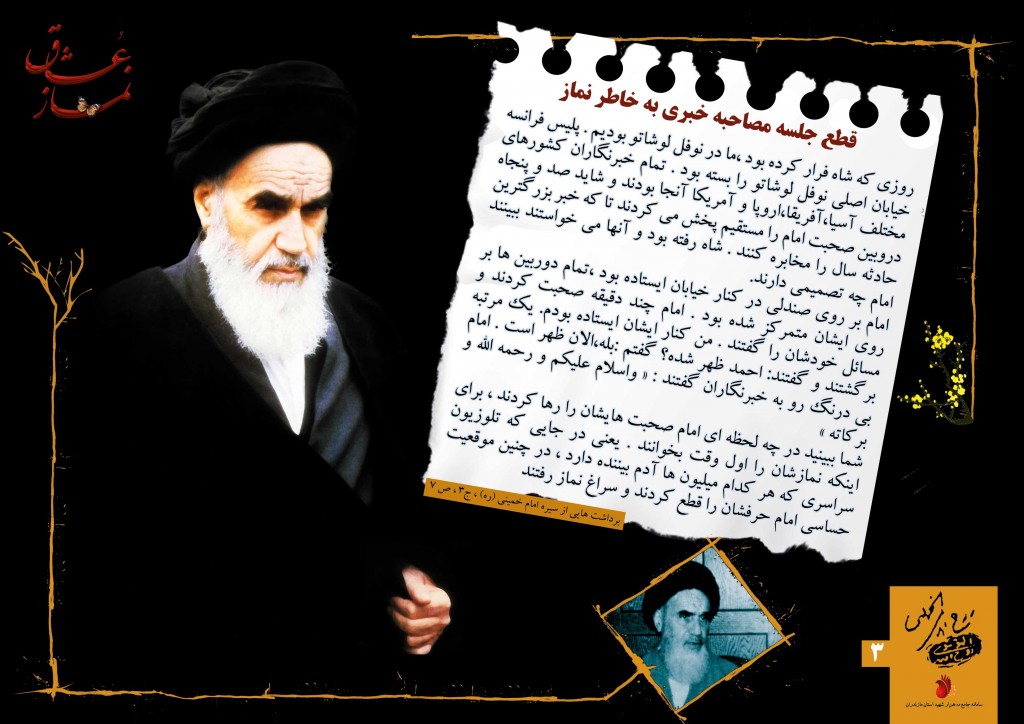 عُشاق نماز
قطع جلسه مصاحبه خبری به خاطر نماز
روزی که شاه فرار کرده بود ،ما در نوفل لوشاتو بودیم . پلیس فرانسه
خیابان اصلی نوفل لوشاتو را بسته بود . تمام خبرنگاران کشورهای
مختلف آسیا،آفریقا،اروپا و آمریکا آنجا بودند و شاید صد و پنجاه
دروبین صحبت امام را مستقیم پخش می کردند تا که خبر بزرگترین
حادثه سال را مخابره کنند . شاه رفته بود و آنها می خواستند ببینند
امام چه تصمیمی دارند.
امام بر روی صندلی در کنار خیابان ایستاده بود ،تمام دوربین ها بر
روی ایشان متمرکز شده بود . امام چند دقیقه صحبت کردند و
مسائل خودشان را گفتند . من کنار ایشان ایستاده بودم. یک مرتبه
برگشتند و گفتند: احمد ظهر شده؟ گفتم :بله،الان ظهر است . امام
بی درنگ رو به خبرنگاران گفتند : « واسلام علیکم و رحمه الله و
برکاته »
شما ببینید در چه لحظه ای امام صحبت هایشان را رها کردند ، برای
اینکه نمازشان را اول وقت بخوانند . یعنی در جایی که تلوزیون
سراسری که هر کدام میلیون ها آدم بیننده دارد ، در چنین موقعیت
حساسی امام حرفشان را قطع کردند و سراغ نماز رفتند
برداشت هایی از سیره امام خمینی (ره) ، ج۳ ، ص ۷
۳
سامانه جامع ده هزار شهید استان مازندران